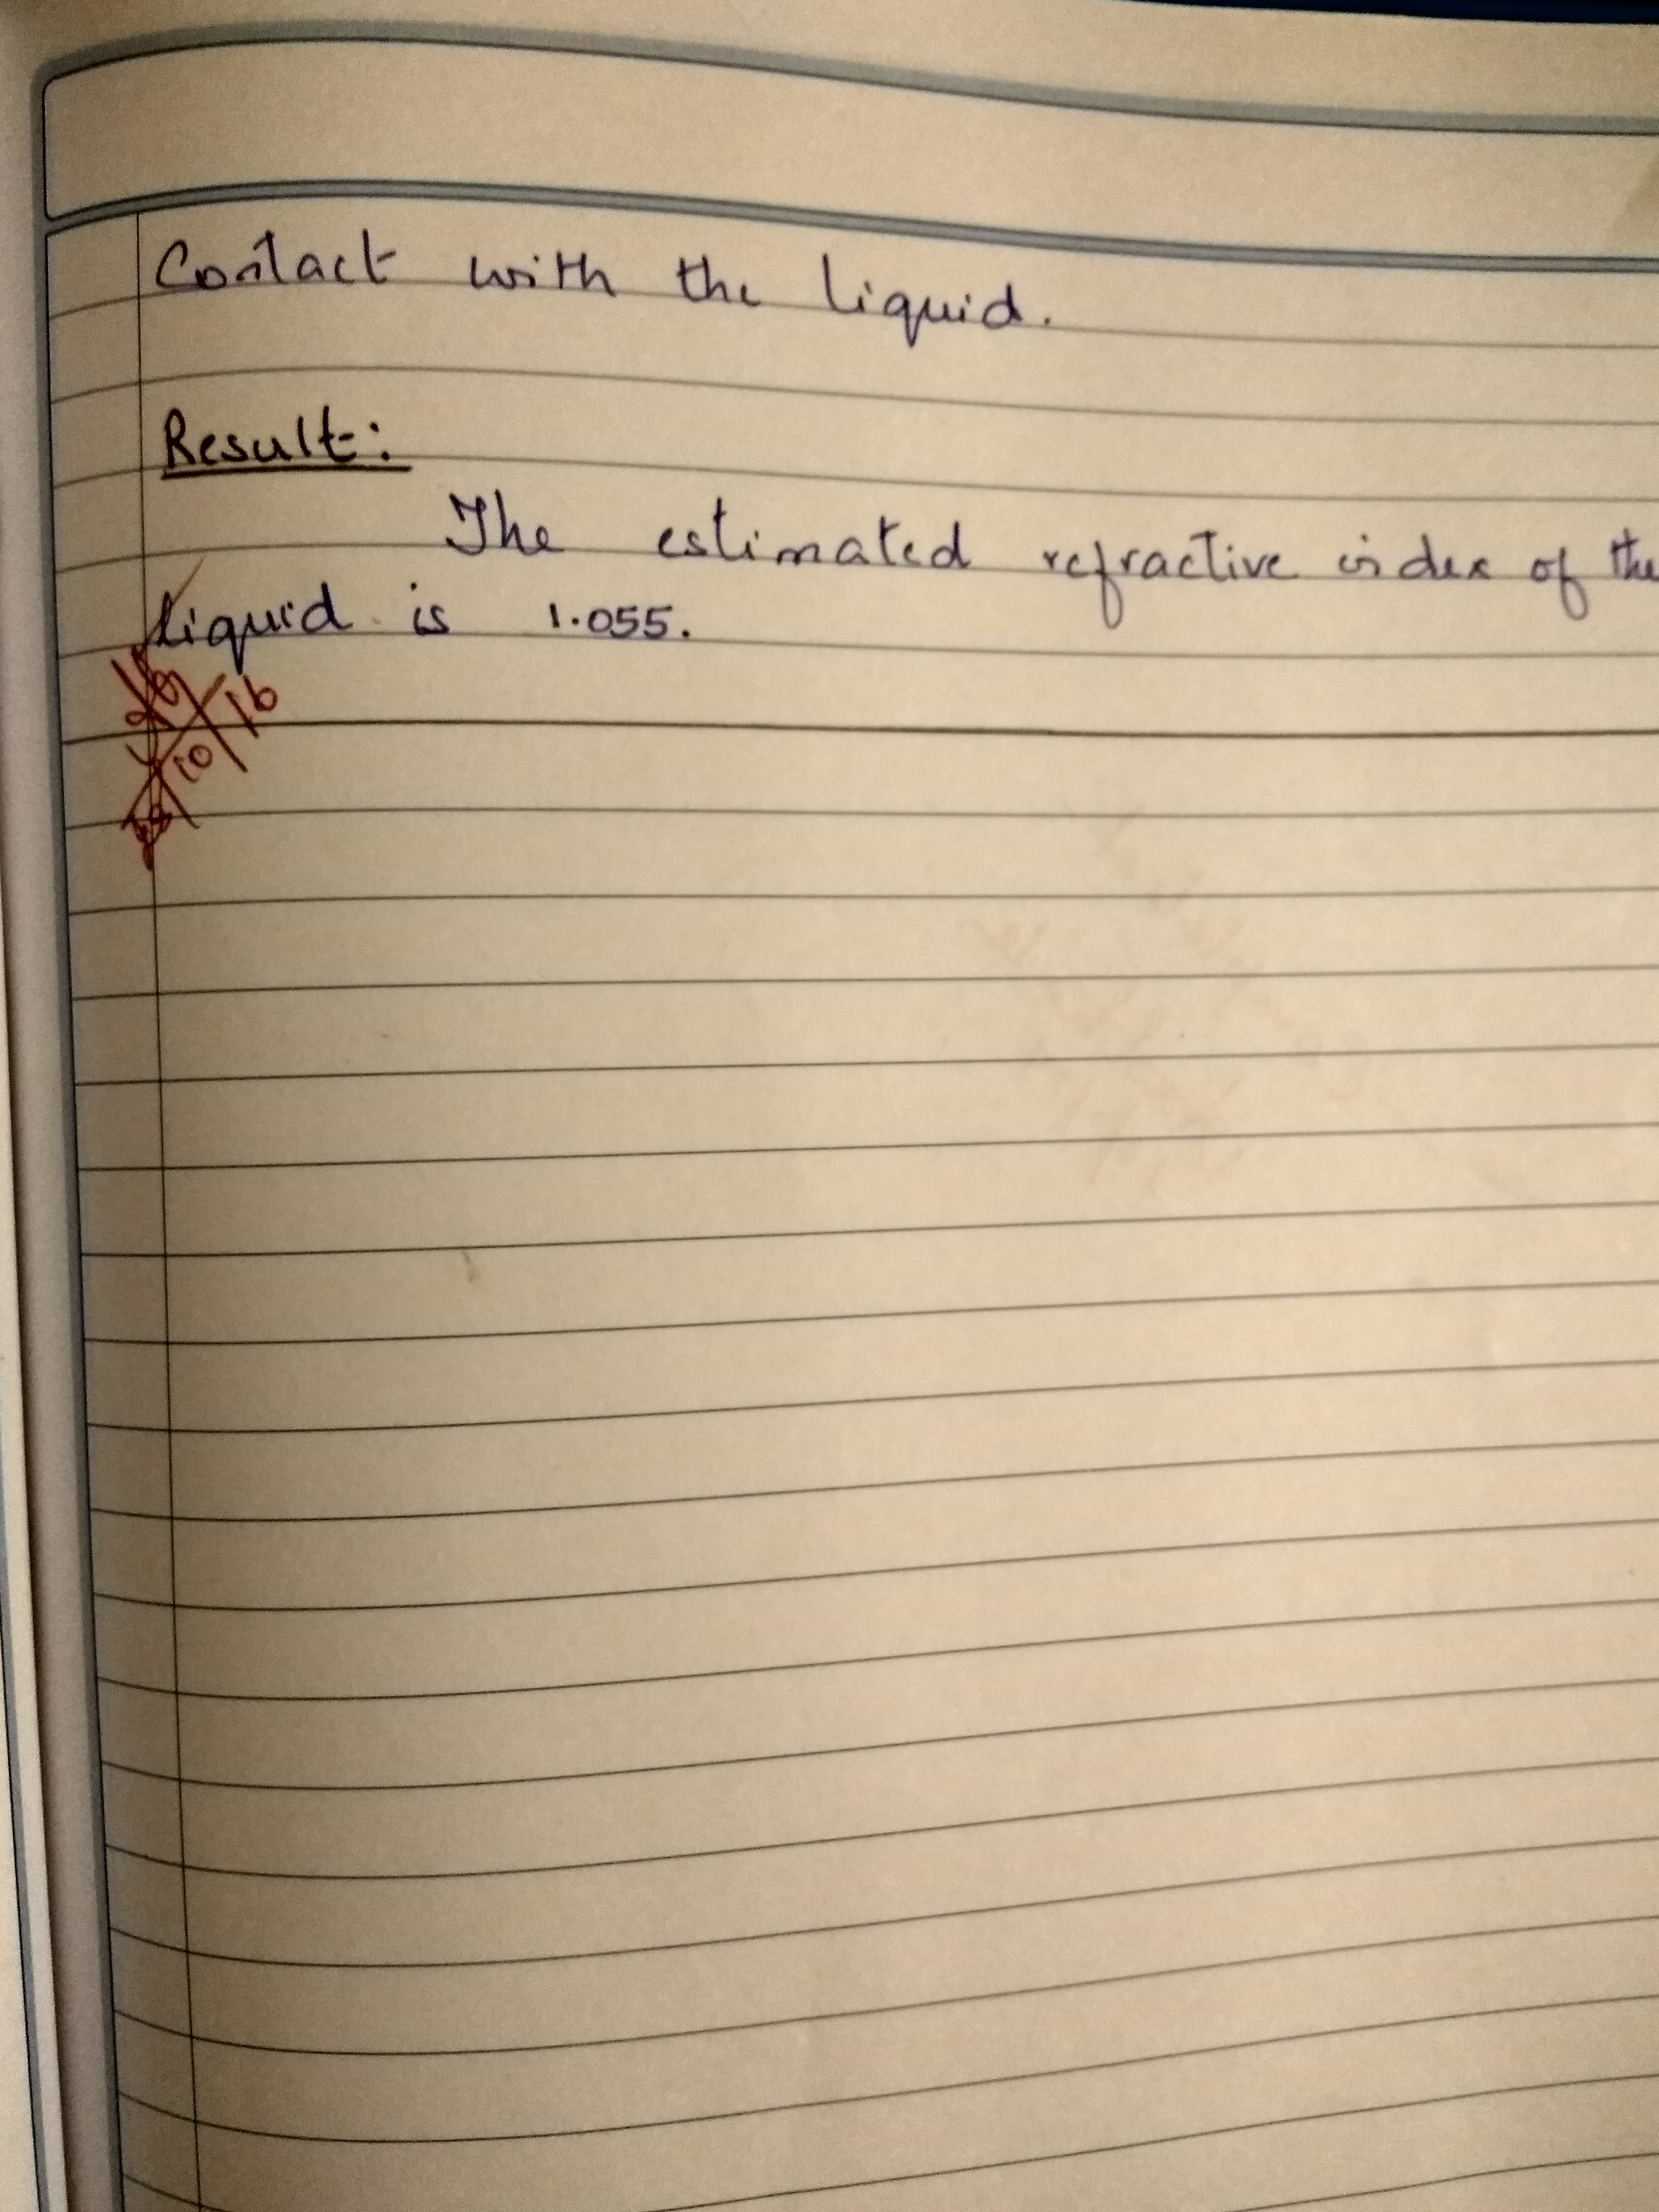 Contact with the liquid.
Result:
The estimated refractive index of the
liquid is 1.055.
10/16